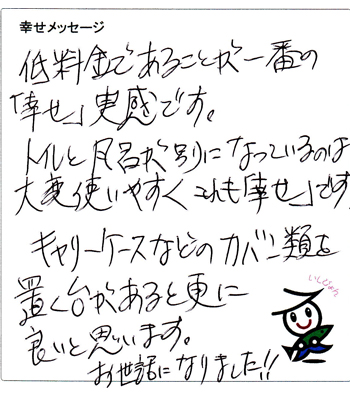 幸せメッセージ
低料金であることが一番の
「幸せ」実感です。
トイレと風呂が別になっているのは
大変使いやすくこれも「幸せ」です
キャリーケースなどのカバン類を
置く台があると更に
良いと思います。
お世話になりました!!